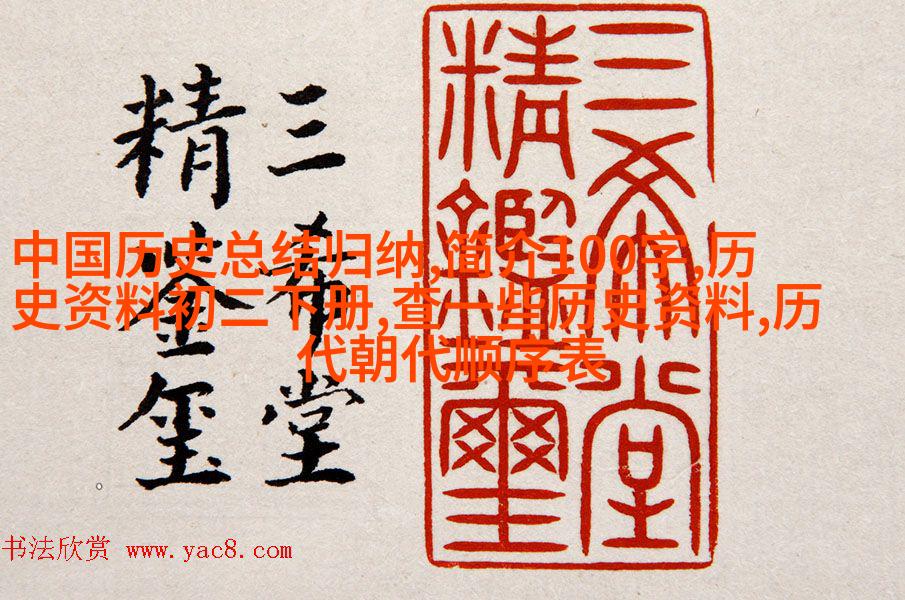 三希堂
精鑑璽
三希堂
精鉴玺
中国历史总结归纳,简介100字,历
史资料初二下册,查一些历史资料,历
代朝代顺序表
书法欣赏 www.yac8.com